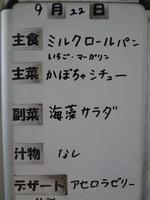 9月22日
主食 ミルクロールパン
いちご・マーガリン
主菜 かぼちゃシチュー
副菜 海藻サラダ
汁物 なし
デザート アセロラゼリー